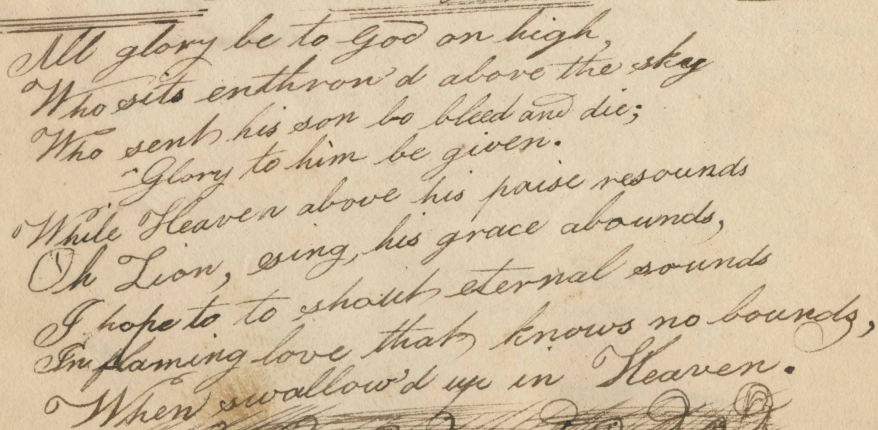 All glory be to God on high,
Who sits enthron'd above the sky
Who sent his son to bleed and die;
Glory to him be given.
While Heaven above his paise resounds
Oh Zion, sing, his grace abounds,
I hope to to shout eternal sounds
In flaming love that knows no bounds,
When swallow'd up in Heaven.